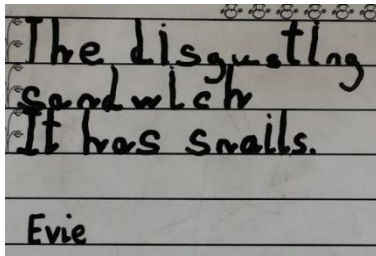 The disgusting
sandwich
It has snails.
Evie